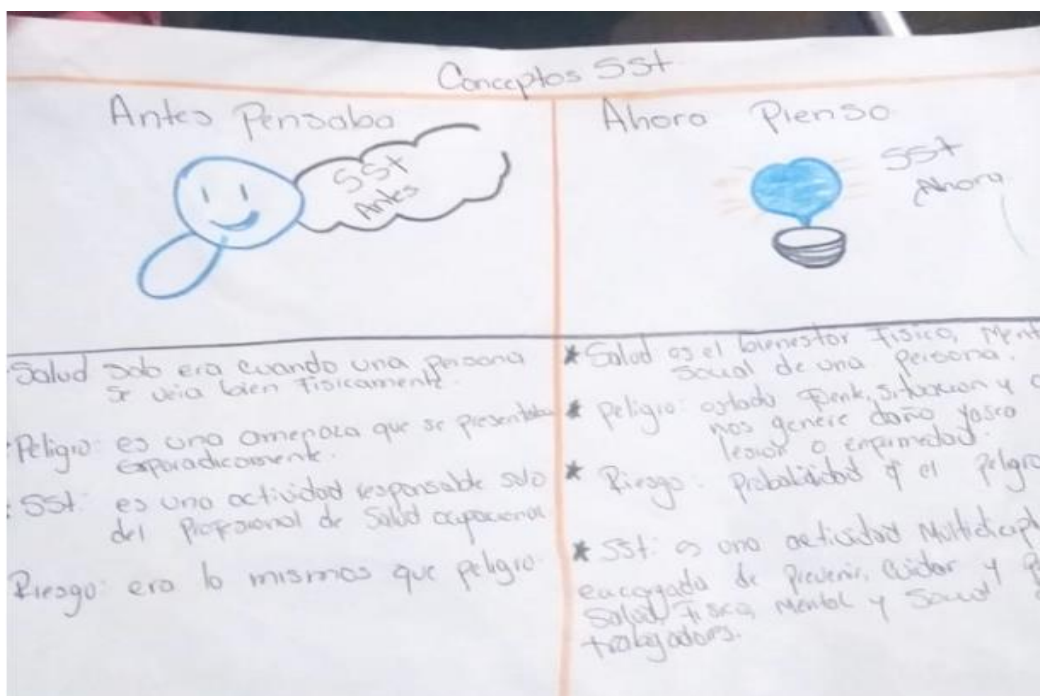 Conceptos SSt
Antes Pensaba
SSt
Antes
Salud solo era cuando una persona
se veia bien Fisicamente.
Peligro: es una amenaza que se presentaba
esporadicamente.
SSt: es una actividad responsable solo
del Profesional de Salud ocupacional
Riesgo: era lo mismos que peligro.
Ahora Pienso
SSt
Ahora
* Salud es el bienestar Fisico, Ment
social de una persona.
* Peligro: estado Fuente, situacion y
nos genere daño ya sea
lesion o enfermedad.
* Riesgo: Probabilidad q el Peligro
* SSt: es una actividad Multidicipl
encargada de Prevenir, Cuidar y
Salud Fisica, Mental y Social
trabajadores.